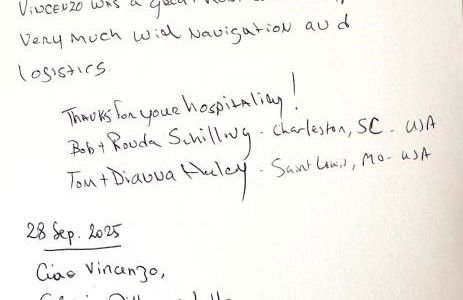 Vincenzo was a great
very much with navigation and
logistics.
Thanks for your hospitality!
Bob + Ronda Schilling - Charleston, SC - USA
Tom + Dianna - Saint Louis, MO - USA
28 Sep. 2025
Ciao Vincenzo,